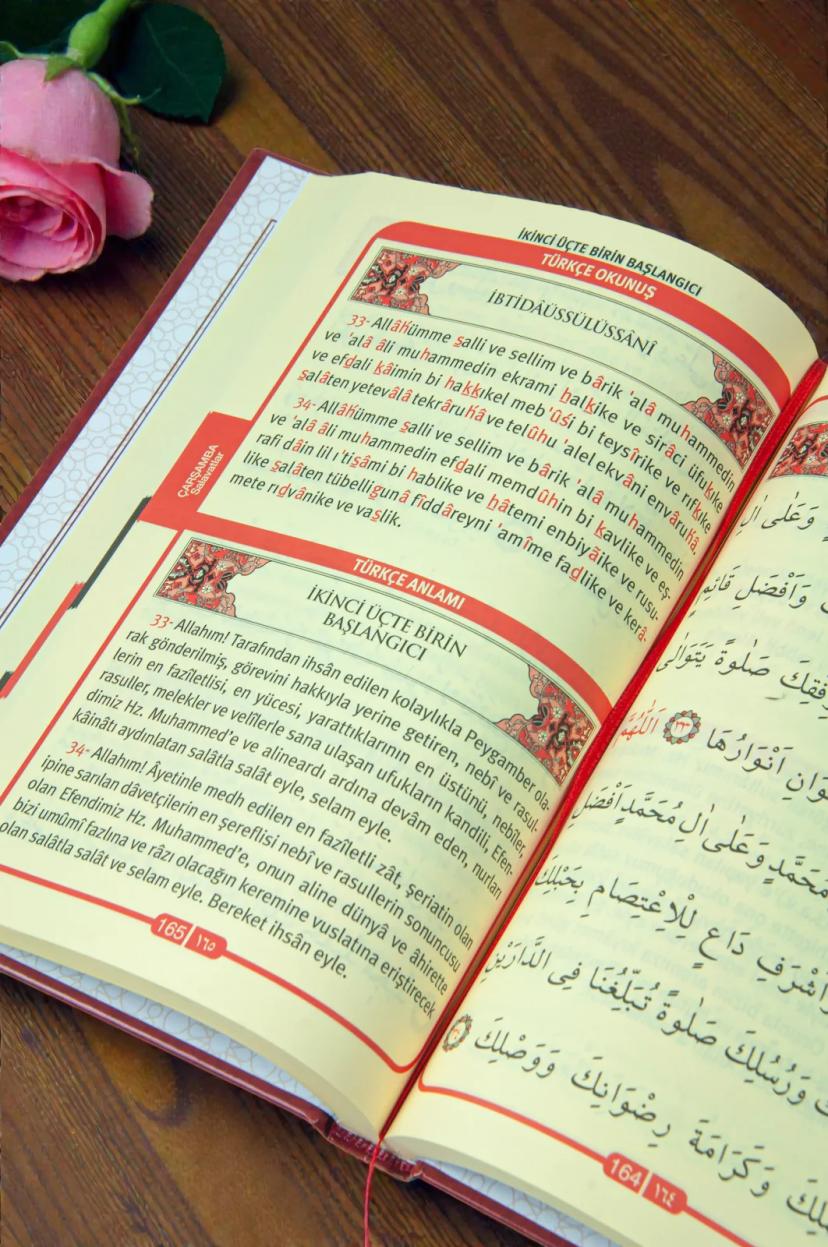 İKİNCİ ÜÇTE BİRİN BAŞLANGICI
TÜRKÇE OKUNUŞ
İBTİDÂÜSSÜLÜSSÂNÎ
33- Allâhümme salli ve sellim ve bârik 'alâ muhammedin
ve 'alâ âli muhammedin ekrami halkike ve sirâci üfukike
ve efdali kâimin bi hakkıkel meb'ûśi bi teysîrike ve rıfkıke
salâten yetevâlâ tekrâruhâ ve telûhu 'alel ekvâni envâruhâ.
34- Allâhümme salli ve sellim ve bârik 'alâ muhammedin
ve 'alâ âli muhammedin efdali memdûhin bi kavlike ve eş-
rafi dâin lil i'tisâmi bi hablike ve hâtemi enbiyâike ve rusu-
like salâten tübelligunâ fiddâreyni 'amîme fadlike ve kerâ-
mete rıdvânike ve vaslik.
ÇARŞAMBA
Salavatlar
TÜRKÇE ANLAMI
İKİNCİ ÜÇTE BİRİN
BAŞLANGICI
33- Allahım! Tarafından ihsân edilen kolaylıkla Peygamber ola-
rak gönderilmiş, görevini hakkıyla yerine getiren, nebî ve rasul-
lerin en fazîletlisi, en yücesi, yarattıklarının en üstünü, nebîler,
rasuller, melekler ve velîlerle sana ulaşan ufukların kandili, Efen-
dimiz Hz. Muhammed'e ve alineardı ardına devâm eden, nurları
kâinâtı aydınlatan salâtla salât eyle, selam eyle.
34- Allahım! Âyetinle medh edilen en fazîletli zât, şeriatin olan
ipine sarılan dâvetçilerin en şereflisi nebî ve rasullerin sonuncusu
olan Efendimiz Hz. Muhammed'e, onun aline dünyâ ve âhirette
bizi umûmî fazlına ve râzı olacağın keremine vuslatına eriştirecek
olan salâtla salât ve selam eyle. Bereket ihsân eyle.
165 ١٦٥
وَعَلٰى اٰلِ
وَاَفْضَلِ قَائِمٍ
صَلٰوةً يَتَوَالٰى
اَنْوَارُهَا ٣٣ اَللّٰهُمَّ
مُحَمَّدٍ وَعَلٰى اٰلِ مُحَمَّدٍ اَفْضَلِ
اَشْرَفِ دَاعٍ لِلْاِعْتِصَامِ بِحَبْلِكَ
وَرُسُلِكَ صَلٰوةً تُبَلِّغُنَا فِى الدَّارَيْنِ
وَكَرَامَةَ رِضْوَانِكَ وَوَصْلِكَ
164 ١٦٤